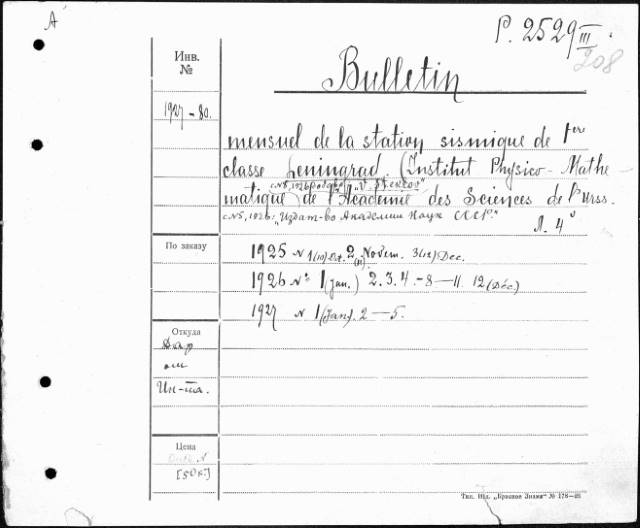 A
P. 2529 III
208
Инв.
№
Bulletin
1927 - 80.
mensuel de la station sismique de 1ère
classe Leningrad. (Institut Physico-Mathe
"V. Steklov"
matique de l'Academie des Sciences de l'Urss.
c N5, 1926: "Издат-во Академии Наук СССР"
Л. 4°
По заказу
1925 N 1(10) Oct. 2(11) Novem. 3(12) Dec.
1926 N° 1 (Jan.) 2. 3. 4. - 8 - 11. 12 (Déc.)
1927 N 1 (Jan). 2 - 5.
Откуда
Дар
от
Ин-та.
Цена
[50 к.]
Тип. Изд. „Красное Знамя“ № 178—26